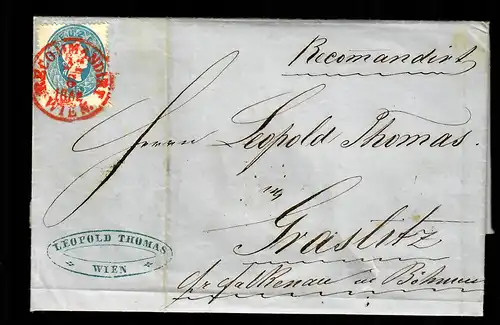 Recomandirt
RECOMMANDIRT
WIEN.
Herrn Leopold Thomas.
in
Graslitz
pr Falkenau in Böhmen
LEOPOLD THOMAS
WIEN